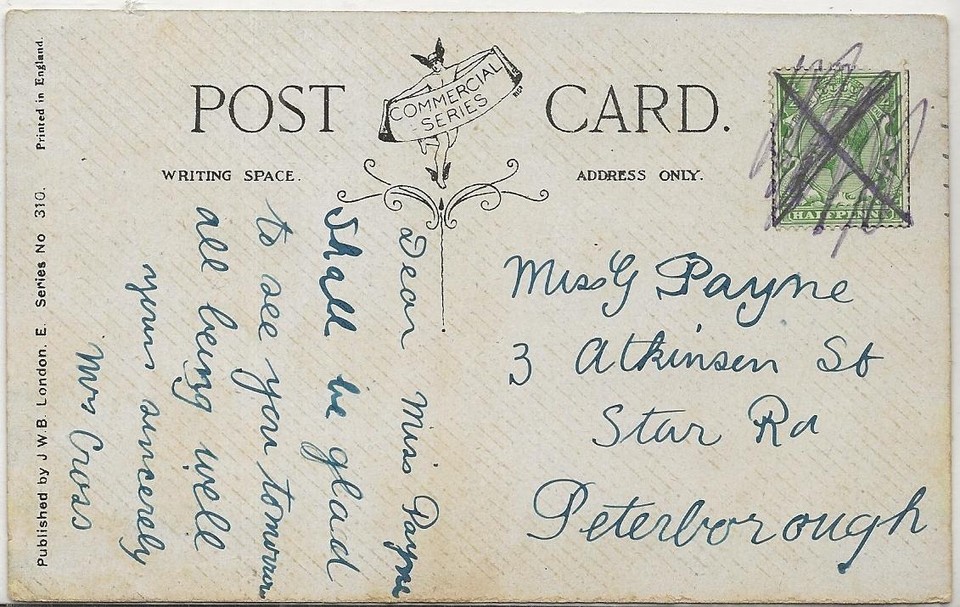 POST CARD.
COMMERCIAL
SERIES
WRITING SPACE.
ADDRESS ONLY.
HALFPENNY
Dear Miss Payne
Shall be glad
to see you tomorrow
all being well
yours sincerely
Mrs Cross
Miss G Payne
3 Atkinson St
Star Rd
Peterborough
Published by J.W.B. London. E. Series No 310. Printed in England.